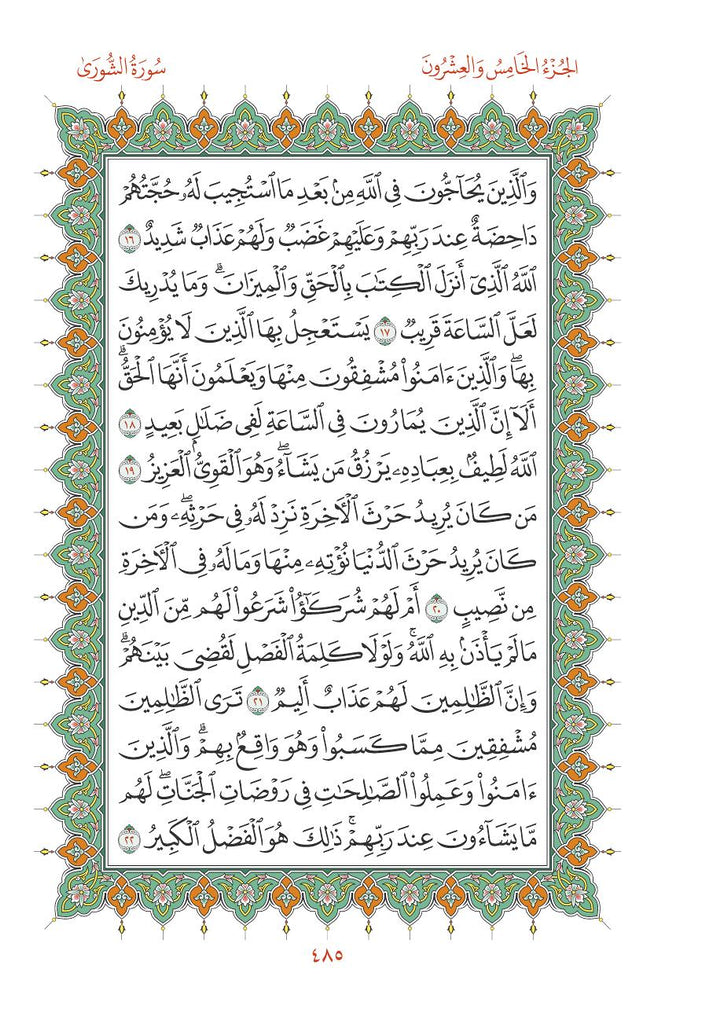 الجُزْءُ الخَامِسُ وَالعِشْرُونَ
سُورَةُ الشُّورَىٰ
وَٱلَّذِينَ يُحَآجُّونَ فِى ٱللَّهِ مِنۢ بَعْدِ مَا ٱسْتُجِيبَ لَهُۥ حُجَّتُهُمْ
دَاحِضَةٌ عِندَ رَبِّهِمْ وَعَلَيْهِمْ غَضَبٌ وَلَهُمْ عَذَابٌ شَدِيدٌ ١٦
ٱللَّهُ ٱلَّذِىٓ أَنزَلَ ٱلْكِتَٰبَ بِٱلْحَقِّ وَٱلْمِيزَانَ ۗ وَمَا يُدْرِيكَ
لَعَلَّ ٱلسَّاعَةَ قَرِيبٌ ١٧ يَسْتَعْجِلُ بِهَا ٱلَّذِينَ لَا يُؤْمِنُونَ
بِهَا ۖ وَٱلَّذِينَ ءَامَنُوا۟ مُشْفِقُونَ مِنْهَا وَيَعْلَمُونَ أَنَّهَا ٱلْحَقُّ ۗ
أَلَآ إِنَّ ٱلَّذِينَ يُمَارُونَ فِى ٱلسَّاعَةِ لَفِى ضَلَٰلٍۭ بَعِيدٍ ١٨
ٱللَّهُ لَطِيفٌۢ بِعِبَادِهِۦ يَرْزُقُ مَن يَشَآءُ ۖ وَهُوَ ٱلْقَوِىُّ ٱلْعَزِيزُ ١٩
مَن كَانَ يُرِيدُ حَرْثَ ٱلْـَٔاخِرَةِ نَزِدْ لَهُۥ فِى حَرْثِهِۦ ۖ وَمَن
كَانَ يُرِيدُ حَرْثَ ٱلدُّنْيَا نُؤْتِهِۦ مِنْهَا وَمَا لَهُۥ فِى ٱلْـَٔاخِرَةِ
مِن نَّصِيبٍ ٢٠ أَمْ لَهُمْ شُرَكَٰٓؤُا۟ شَرَعُوا۟ لَهُم مِّنَ ٱلدِّينِ
مَا لَمْ يَأْذَنۢ بِهِ ٱللَّهُ ۚ وَلَوْلَا كَلِمَةُ ٱلْفَصْلِ لَقُضِىَ بَيْنَهُمْ ۗ
وَإِنَّ ٱلظَّٰلِمِينَ لَهُمْ عَذَابٌ أَلِيمٌ ٢١ تَرَى ٱلظَّٰلِمِينَ
مُشْفِقِينَ مِمَّا كَسَبُوا۟ وَهُوَ وَاقِعٌۢ بِهِمْ ۗ وَٱلَّذِينَ
ءَامَنُوا۟ وَعَمِلُوا۟ ٱلصَّٰلِحَٰتِ فِى رَوْضَاتِ ٱلْجَنَّاتِ ۖ لَهُم
مَّا يَشَآءُونَ عِندَ رَبِّهِمْ ۚ ذَٰلِكَ هُوَ ٱلْفَضْلُ ٱلْكَبِيرُ ٢٢
٤٨٥